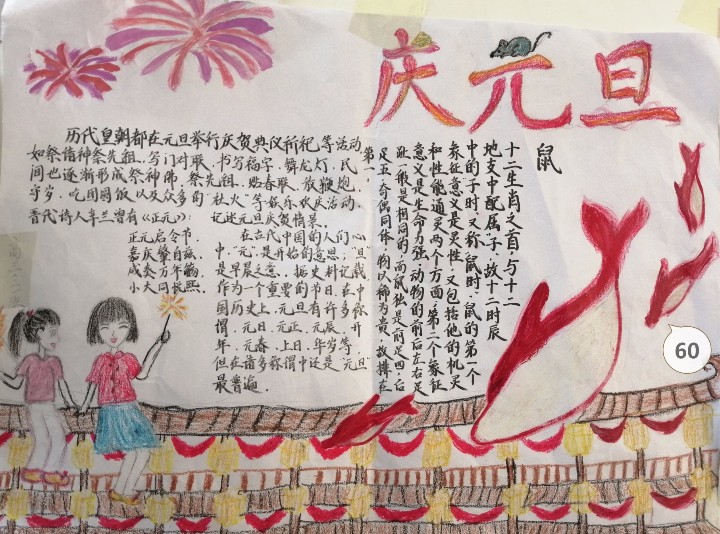 庆元旦
历代皇朝都在元旦举行庆贺典仪祈祀等活动,
如祭诸神祭先祖,写门对联、书写福字、舞龙灯,民
间也逐渐形成祭神佛、祭先祖、贴春联、放鞭炮、
守岁、吃团圆饭以及众多的"社火"等娱乐欢庆活动。
晋代诗人辛兰曾有《正元》: 记述元旦庆贺情景。
正元启令节,
嘉庆肇自兹。
咸奏万年觞,
小大同悦熙。
在古代中国的人们心
中,"元"是开始的意思;"旦"
是早晨之意。据史料记载,
作为一个重要的节日,在多
国历史上,元旦有许多称
谓,元日、元正、元辰、开
年、元春、上日、华岁等,
但在诸多称谓中还是"元旦"
最普遍。
鼠
十二生肖之首,与十二
地支中配属子,故十二时辰
中的子时,又称鼠时,鼠的第一个
象征意义是灵性,又包括他的机灵
和性能通灵两个方面,第二个象征
意义是生命力强,动物的前后左右足
趾一般是相同的,而鼠独是前足四,后
足五,奇偶同体,物以稀为贵,故排在
第一。
60